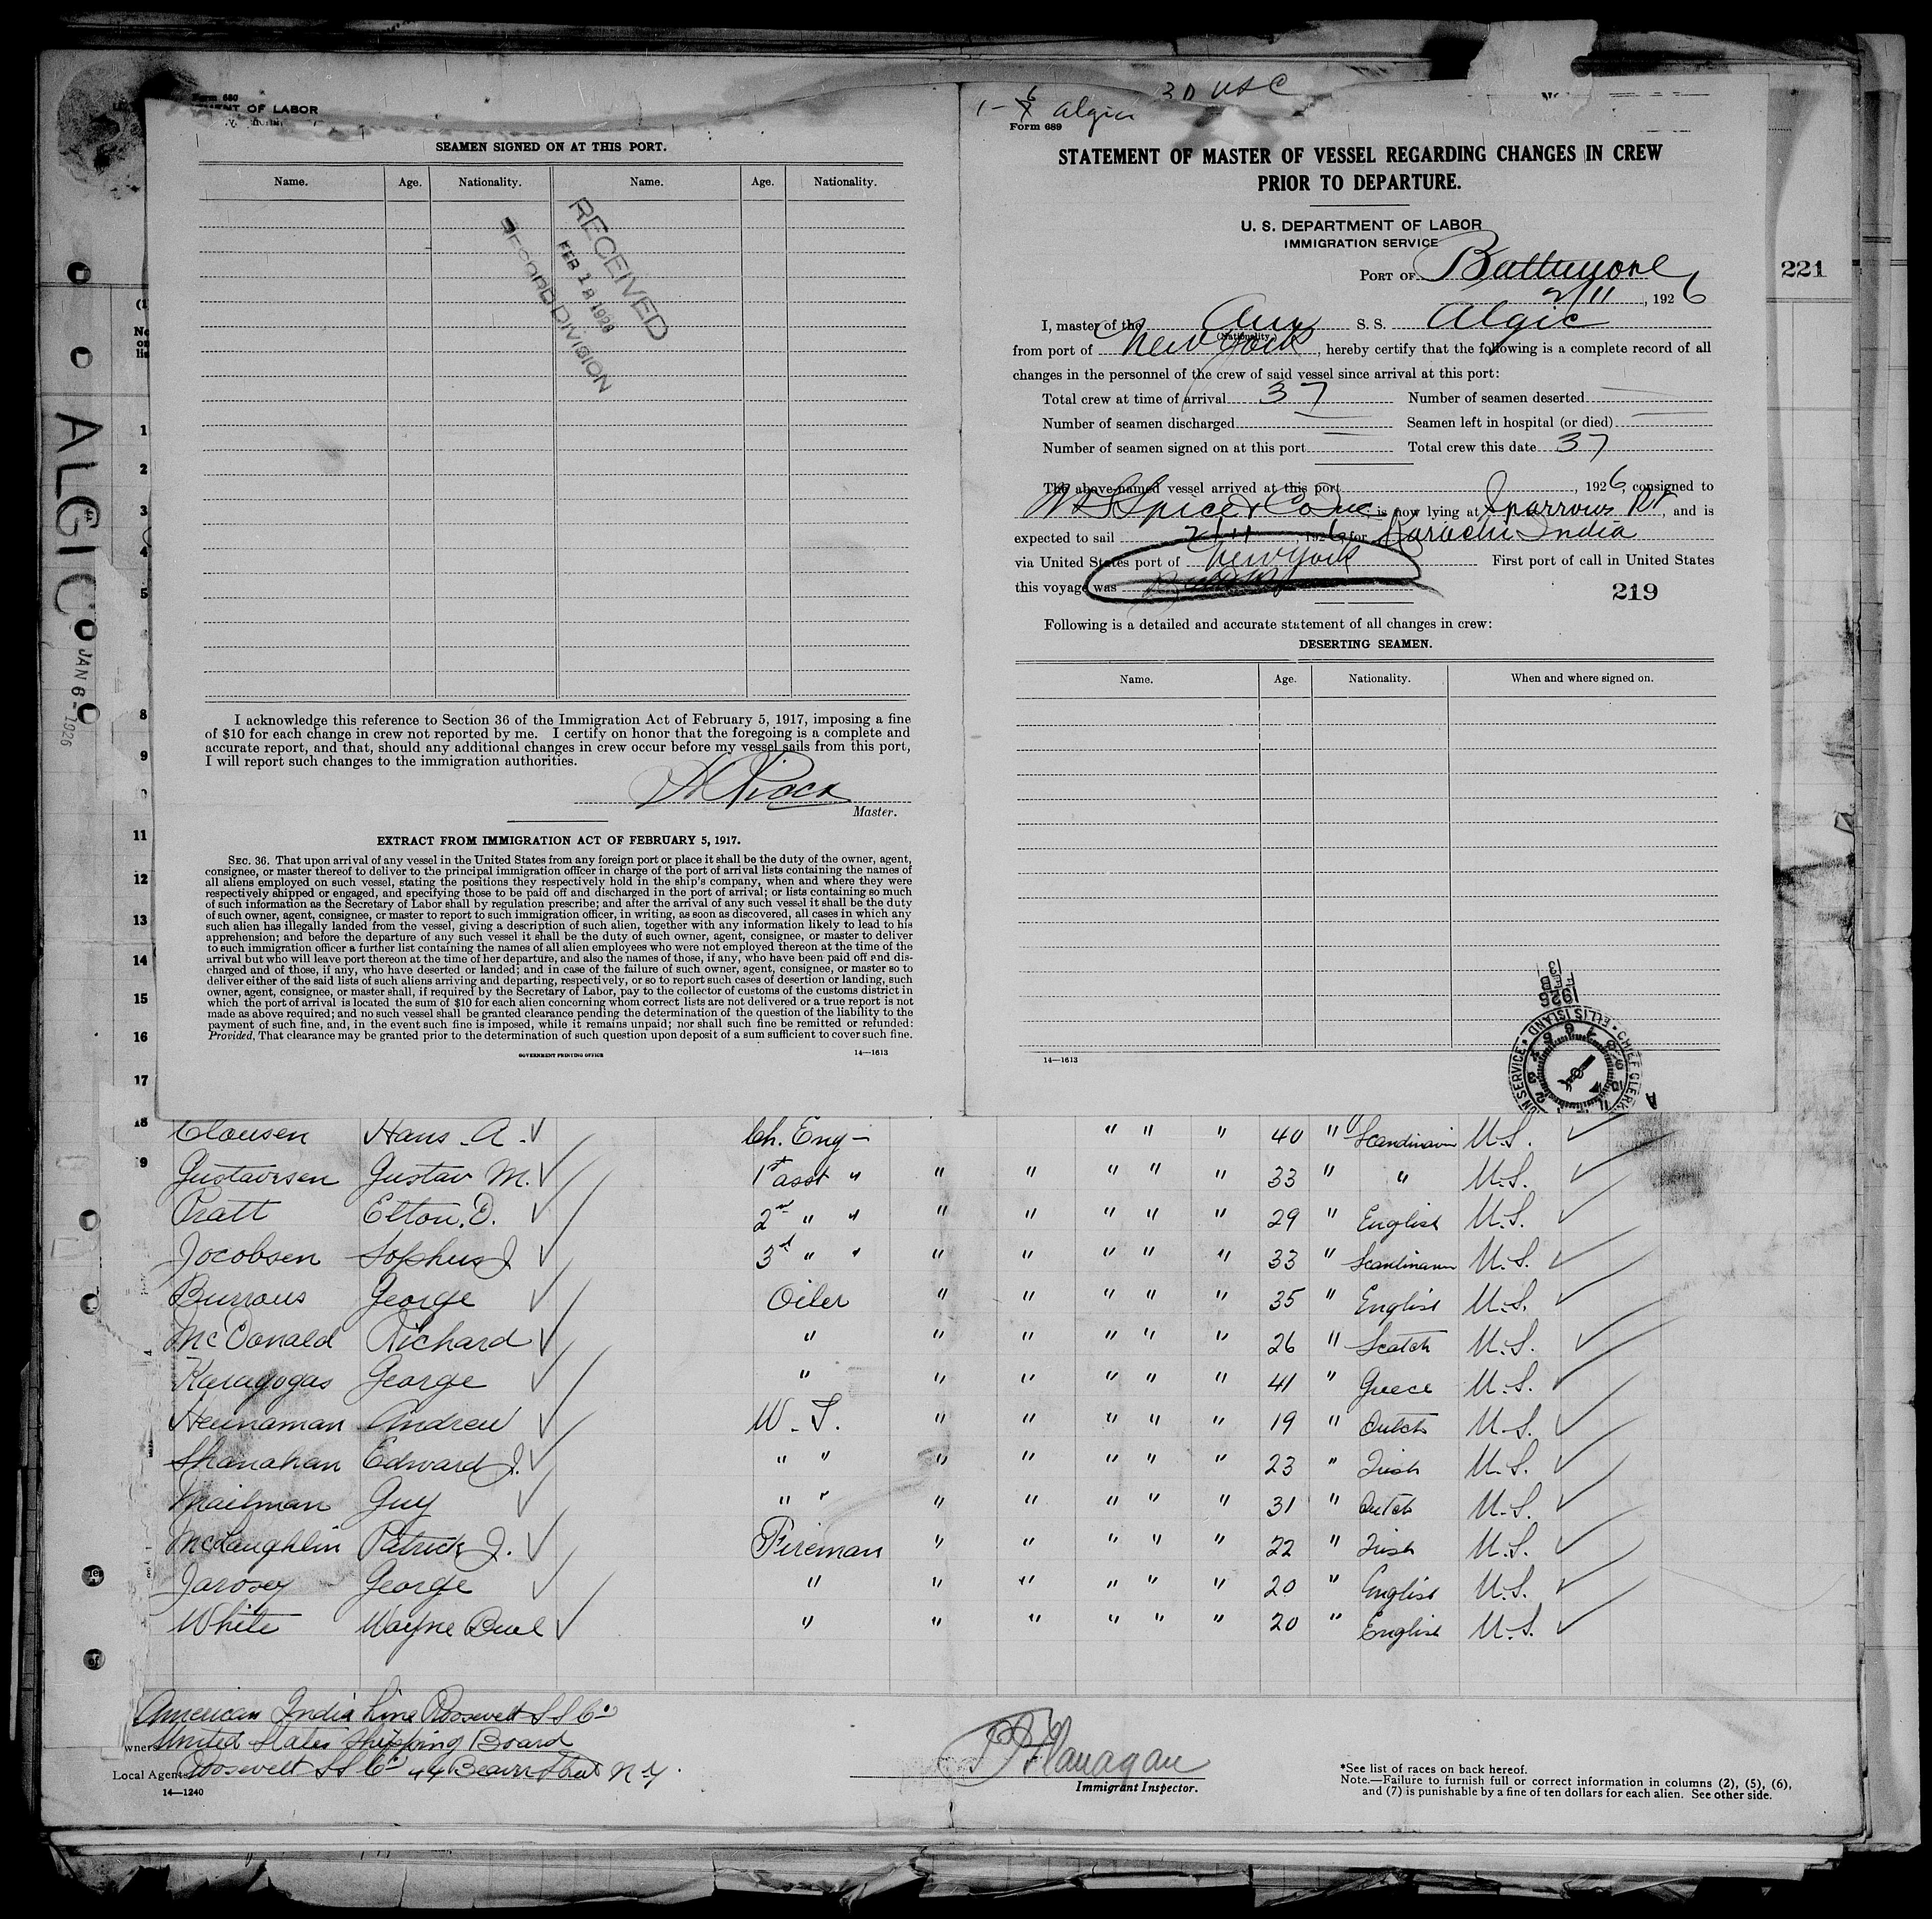 Form 680
MENT OF LABOR
SEAMEN SIGNED ON AT THIS PORT.
Name. Age. Nationality. Name. Age. Nationality.
RECEIVED
FEB 18 1926
RECORD DIVISION
I acknowledge this reference to Section 36 of the Immigration Act of February 5, 1917, imposing a fine
of $10 for each change in crew not reported by me. I certify on honor that the foregoing is a complete and
accurate report, and that, should any additional changes in crew occur before my vessel sails from this port,
I will report such changes to the immigration authorities.
Master.
EXTRACT FROM IMMIGRATION ACT OF FEBRUARY 5, 1917.
SEC. 36. That upon arrival of any vessel in the United States from any foreign port or place it shall be the duty of the owner, agent,
consignee, or master thereof to deliver to the principal immigration officer in charge of the port of arrival lists containing the names of
all aliens employed on such vessel, stating the positions they respectively hold in the ship's company, when and where they were
respectively shipped or engaged, and specifying those to be paid off and discharged in the port of arrival; or lists containing so much
of such information as the Secretary of Labor shall by regulation prescribe; and after the arrival of any such vessel it shall be the duty
of such owner, agent, consignee, or master to report to such immigration officer, in writing, as soon as discovered, all cases in which any
such alien has illegally landed from the vessel, giving a description of such alien, together with any information likely to lead to his
apprehension; and before the departure of any such vessel it shall be the duty of such owner, agent, consignee, or master to deliver
to such immigration officer a further list containing the names of all alien employees who were not employed thereon at the time of the
arrival but who will leave port thereon at the time of her departure, and also the names of those, if any, who have been paid off and dis-
charged and of those, if any, who have deserted or landed; and in case of the failure of such owner, agent, consignee, or master so to
deliver either of the said lists of such aliens arriving and departing, respectively, or so to report such cases of desertion or landing, such
owner, agent, consignee, or master shall, if required by the Secretary of Labor, pay to the collector of customs of the customs district in
which the port of arrival is located the sum of $10 for each alien concerning whom correct lists are not delivered or a true report is not
made as above required; and no such vessel shall be granted clearance pending the determination of the question of the liability to the
payment of such fine, and, in the event such fine is imposed, while it remains unpaid; nor shall such fine be remitted or refunded:
Provided, That clearance may be granted prior to the determination of such question upon deposit of a sum sufficient to cover such fine.
GOVERNMENT PRINTING OFFICE 14—1613
1-6 Algic 3D USC
Form 689
STATEMENT OF MASTER OF VESSEL REGARDING CHANGES IN CREW
PRIOR TO DEPARTURE.
U. S. DEPARTMENT OF LABOR
IMMIGRATION SERVICE
PORT OF Baltimore
2/11, 1926
I, master of the Am S. S. Algic
(Nationality)
from port of New York, hereby certify that the following is a complete record of all
changes in the personnel of the crew of said vessel since arrival at this port:
Total crew at time of arrival 37 Number of seamen deserted
Number of seamen discharged Seamen left in hospital (or died)
Number of seamen signed on at this port Total crew this date 37
The above-named vessel arrived at this port , 1926, consigned to
Spicer Co Inc, is now lying at Sparrows Pt, and is
expected to sail 2/11, 1926, for Karachi India
via United States port of New York First port of call in United States
this voyage was
219
221
Following is a detailed and accurate statement of all changes in crew:
DESERTING SEAMEN.
Name. Age. Nationality. When and where signed on.
14—1613
1926 FEB 13
CHIEF CLERK ELLIS ISLAND
ALGIC
JAN 6 - 1926
1
2
3
4
5
8
9
11
12
13
14
15
16
17
18 Clausen Hans A. Ch. Eng - " " " 40 " Scandinavia U.S.
9 Gustavesen Gustav M. 1st asst " " " " " " 33 " " U.S.
Pratt Elton. D. 2nd " " " " " " " 29 " English U.S.
Jocobsen Sophus J 3d " " " " " " " 33 " Scandinavian U.S.
Burrous George Oiler " " " " " 35 " English U.S.
McDonald Richard " " " " " " 26 " Scotch U.S.
Karagogas George " " " " " " 41 " Greece U.S.
Heinaman Andrew W. T. " " " " " 19 " Dutch U.S.
Shanahan Edward J. " " " " " " " 23 " Irish U.S.
Mailman Guy " " " " " " " 31 " Dutch U.S.
McLaughlin Patrick J. Fireman " " " " " 22 " Irish U.S.
Jarosey George " " " " " " 20 " English U.S.
White Wayne Buel " " " " " " 20 " English U.S.
American India Line Roosevelt S S Co
owners United States Shipping Board
Local Agents Roosevelt SS Co 44 Beaver Street N.Y.
14—1240
Flanagan
Immigrant Inspector.
*See list of races on back hereof.
Note.—Failure to furnish full or correct information in columns (2), (5), (6),
and (7) is punishable by a fine of ten dollars for each alien. See other side.